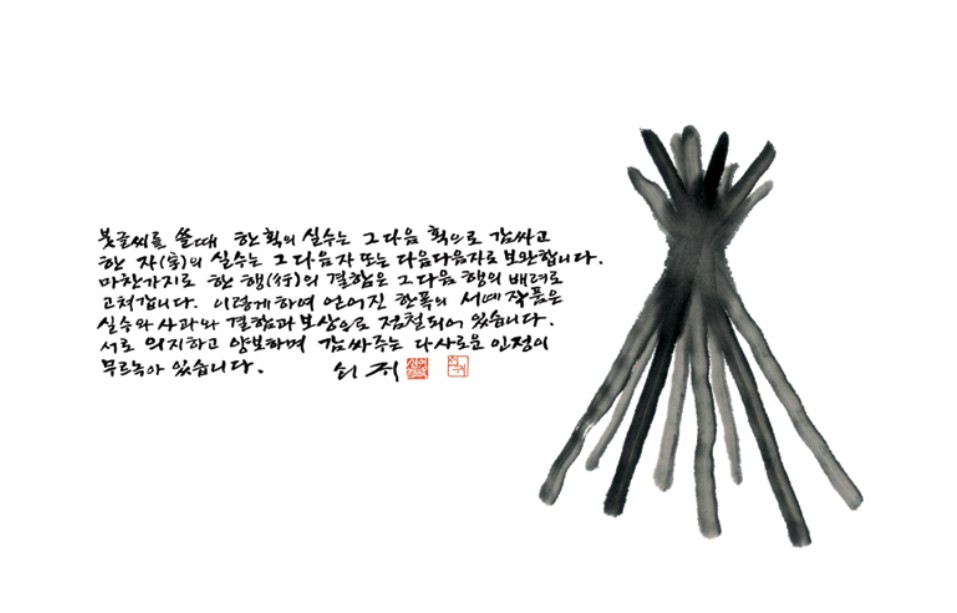 붓글씨를 쓸 때 한 획의 실수는 그 다음 획으로 감싸고
한 자(字)의 실수는 그 다음 자 또는 다음다음 자로 보완합니다.
마찬가지로 한 행(行)의 결함은 그 다음 행의 배려로
고쳐갑니다. 이렇게 하여 얻어진 한 폭의 서예작품은
실수와 사과와 결함과 보상으로 점철되어 있습니다.
서로 의지하고 양보하며 감싸주는 다사로운 인정이
무르녹아 있습니다. 쇠귀